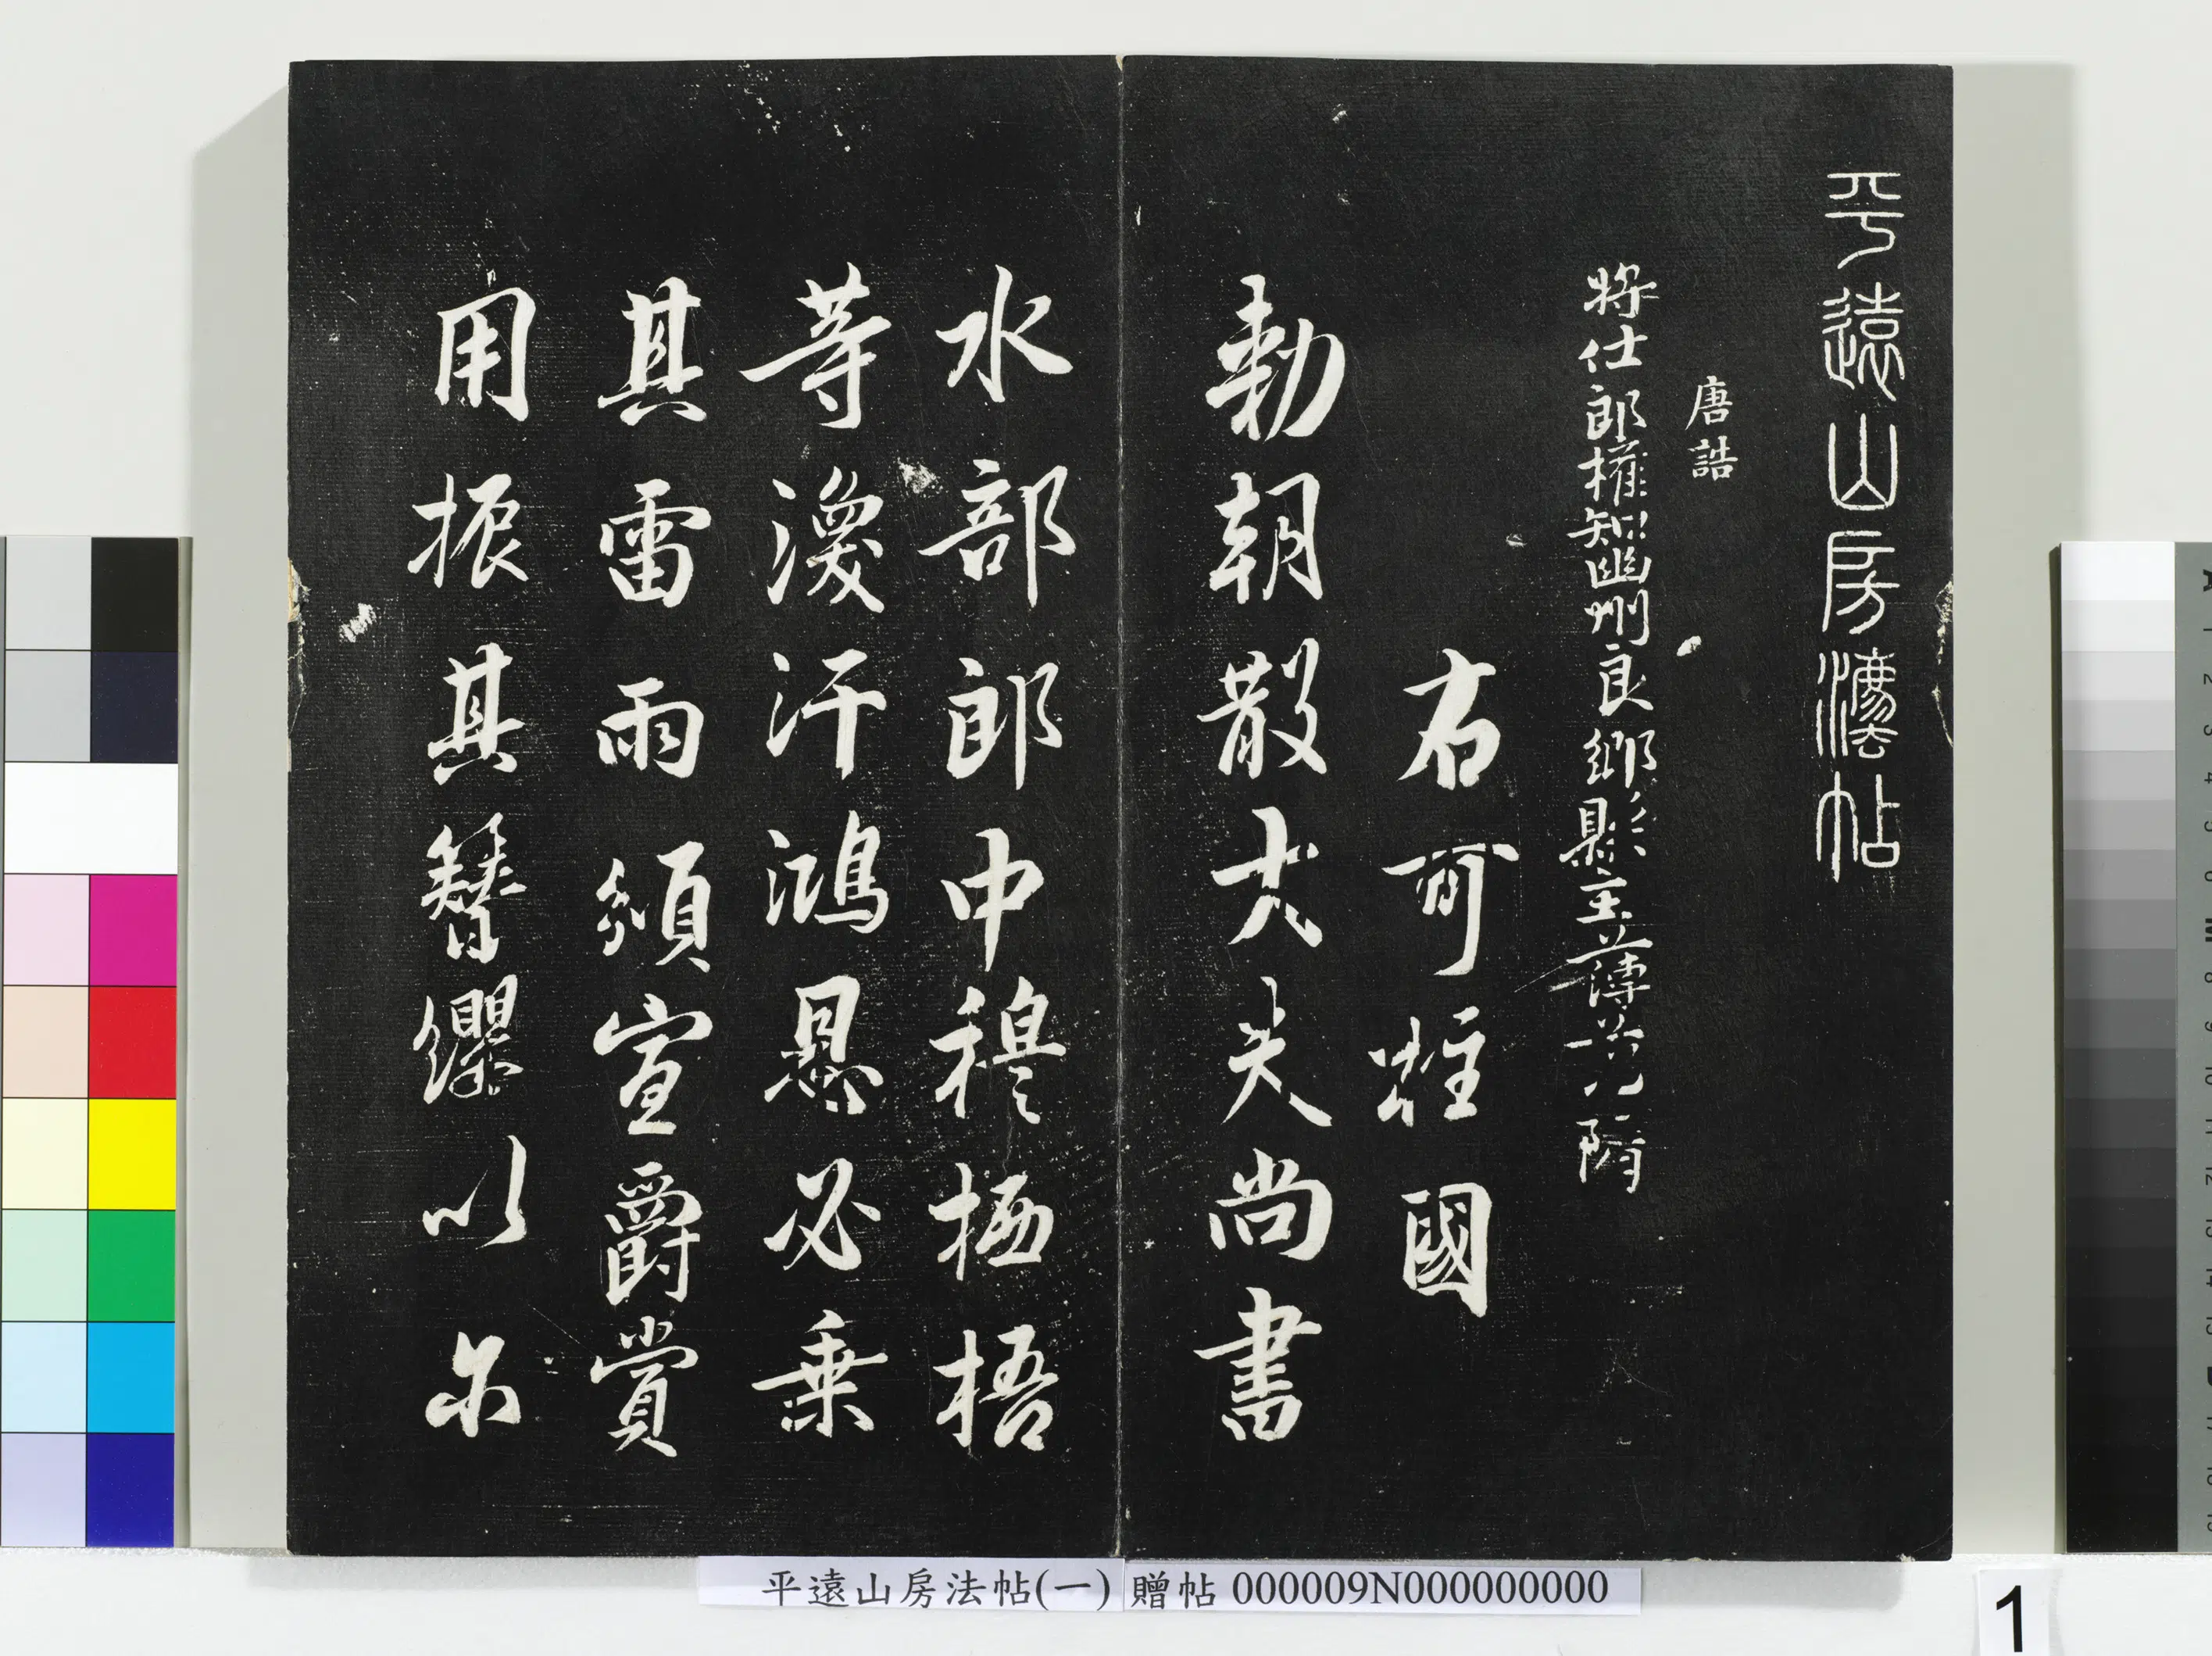 平遠山房灋帖
唐誥
將仕郎權知幽州良鄉縣主薄
右可柱國
勅朝散大夫尚書
水部郎中穆栖梧
等渙汗鴻恩必乗
其雷雨頒宣爵賞
用振其簪纓以尒
平遠山房法帖(一) 贈帖 000009N000000000
1